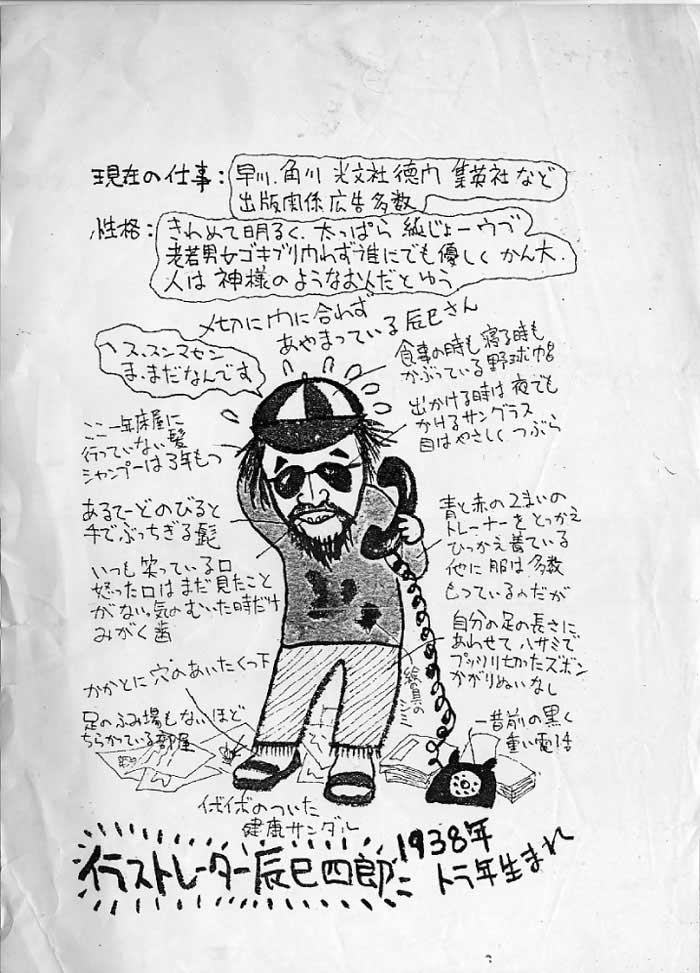 現在の仕事：
早川、角川 光文社 徳间 集英社 など
出版関係広告多数
性格：
きわめて明るく、太っぱら 純じょーウブ
老若男女ゴキブリ问わず誰にでも優しく かん大.
人は 神様のようなお人だとゆう
〆切に间に合わず
あやまっている 辰巳さん
ス、スンマセン
ま、まだなんです
食事の時も 寝る時も
かぶっている 野球帽
出かける時は 夜でも
かけるサングラス
目はやさしく つぶら
ここ一年床屋に
行っていない髪
シャンプーは3年もつ
あるてーどのびると
手でぶっちぎる髭
青と赤の2まいの
トレーナーを とっかえ
ひっかえ着ている
他に服は多数
もっているのだが
いつも 笑っている口
怒った口はまだ見たこと
がない。気のむいた時だけ
みがく歯
自分の足の長さに
あわせて ハサミで
プッツリ切ったズボン
かがりぬいなし
絵具の
シミ
かかとに穴のあいたくつ下
足のふみ場もないほど
ちらかっている部屋
一昔前の黒く
重い電話
イボイボのついた
健康サンダル
イラストレーター辰巳四郎
1938年
トラ年生まれ